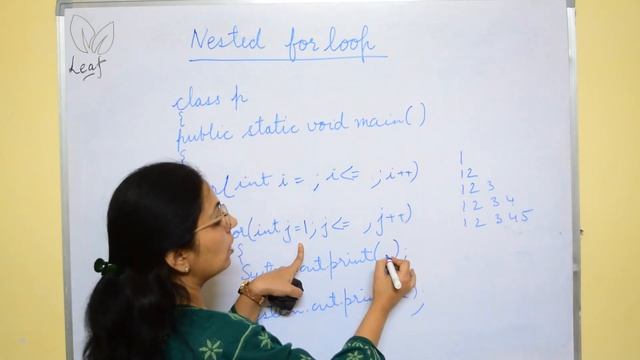 Leaf
Nested for loop
class p
{
public static void main()
{
(int i = ; i<= ; i++)
or(int j=1; j<= , j++)
{
System.out.print( );
stem.out.prin );
1
12
1 2 3
1 2 3 4
1 2 3 4 5